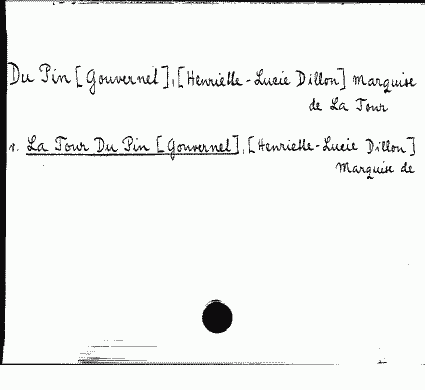 Du Pin [Gouvernet], [Henriette-Lucie Dillon] Marquise
de La Tour
s. La Tour Du Pin [Gouvernet], [Henriette-Lucie Dillon]
Marquise de